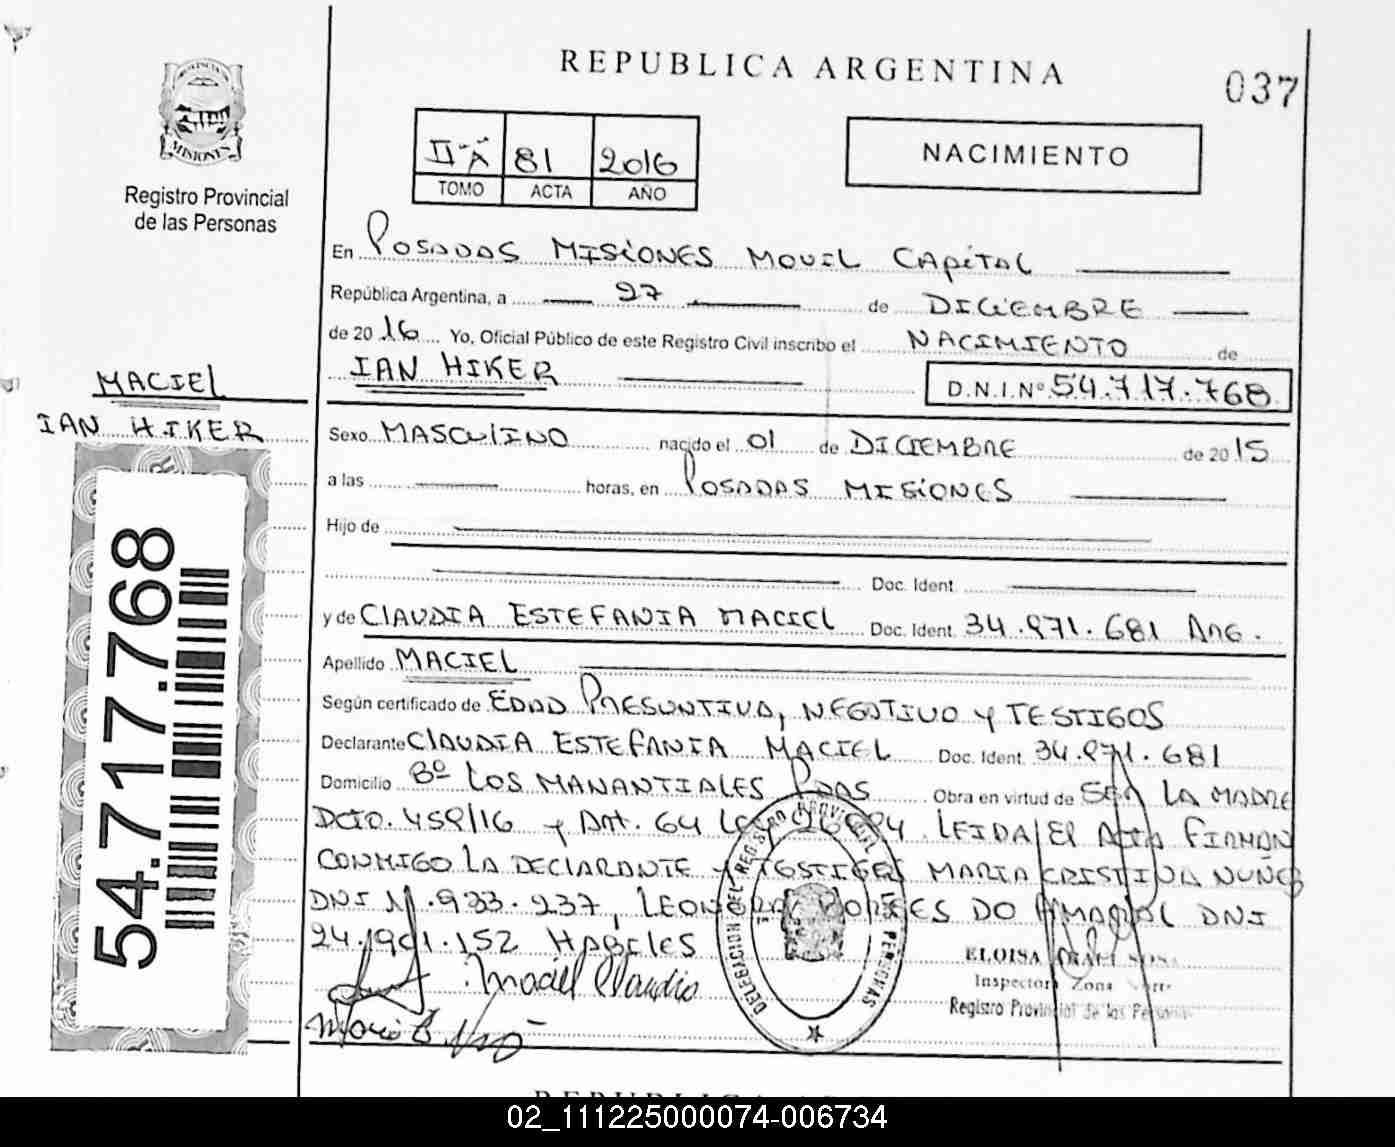 REPUBLICA ARGENTINA
037
PROVINCIA
MISIONES
Registro Provincial
de las Personas
II-A 81 2016
TOMO ACTA AÑO
NACIMIENTO
En POSADAS MISIONES MOVIL CAPITAL
República Argentina, a 27 de DICIEMBRE
de 2016 Yo, Oficial Público de este Registro Civil inscribo el NACIMIENTO de
IAN HIKER
D.N.I.Nº 54.717.768
MACIEL
IAN HIKER
Sexo MASCULINO nacido el 01 de DICIEMBRE de 2015
a las horas, en POSADAS MISIONES
Hijo de
Doc. Ident.
y de CLAUDIA ESTEFANIA MACIEL Doc. Ident. 34.971.681 ARG.
Apellido MACIEL
Según certificado de EDAD PRESUNTIVA, NEGATIVO Y TESTIGOS
Declarante CLAUDIA ESTEFANIA MACIEL Doc. Ident. 34.971.681
Domicilio Bº LOS MANANTIALES PDAS Obra en virtud de SER LA MADRE
DCTO. 459/16 y ART. 64 LEY LEIDA EL ACTA FIRMAN
CONMIGO LA DECLARANTE Y TESTIGOS MARIA CRISTINA NUÑES
DNI 11.933.237, LEONORA DO AMARAL DNI
24.901.152 HABILES
Maciel Claudia
54.717.768
DELEGACION DEL REGISTRO PROVINCIAL PERSONAS
ELOISA SOSA
Inspectora Zona
Registro Provincial de las Personas
REPUBLICA
02_111225000074-006734